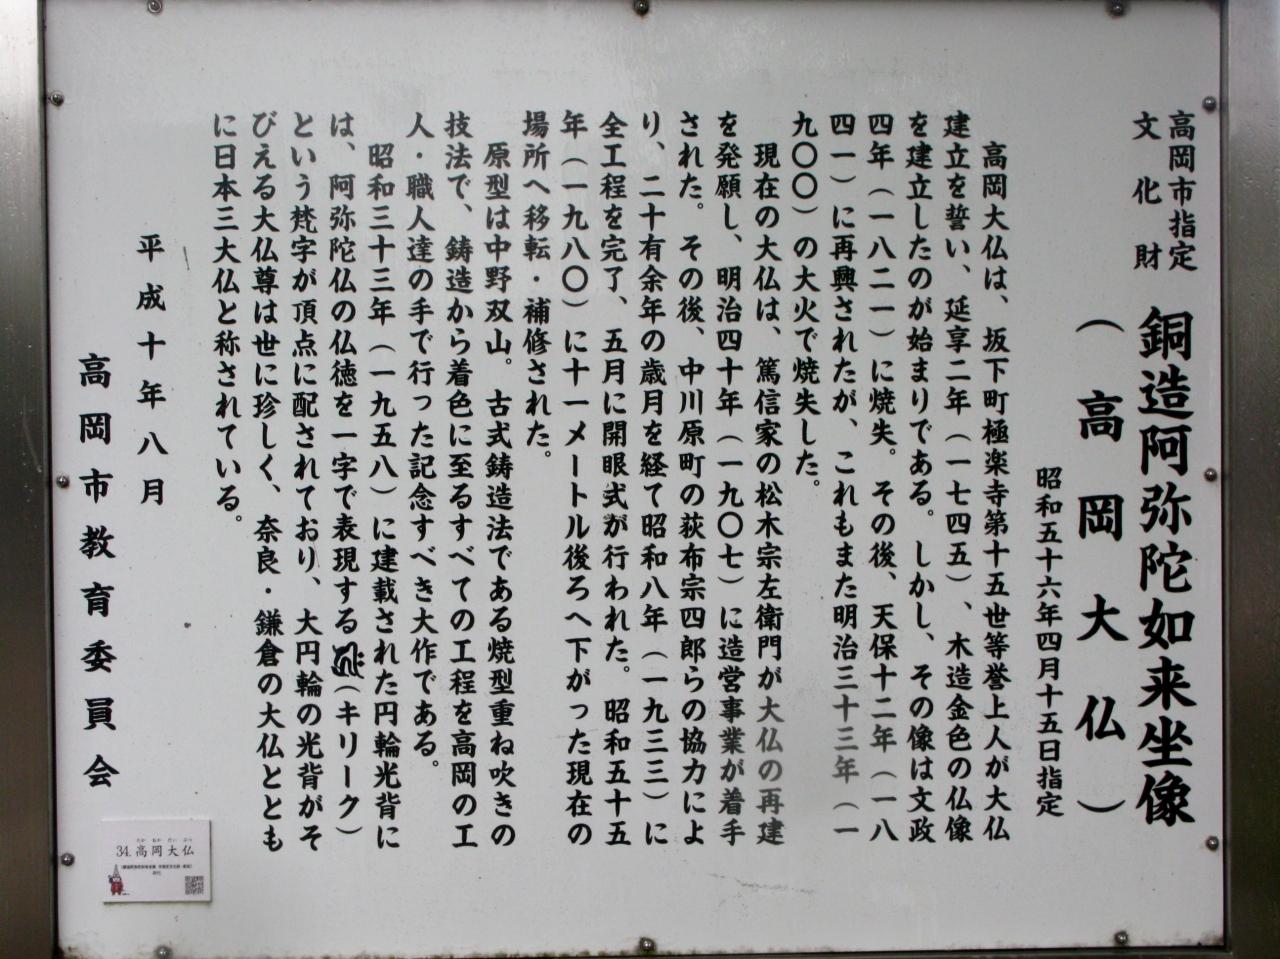 高岡市指定
文化財
銅造阿弥陀如来坐像
（高岡大仏）
昭和五十六年四月十五日指定
高岡大仏は、坂下町極楽寺第十五世等誉上人が大仏
建立を誓い、延享二年（一七四五）、木造金色の仏像
を建立したのが始まりである。しかし、その像は文政
四年（一八二一）に焼失。その後、天保十二年（一八
四一）に再興されたが、これもまた明治三十三年（一
九〇〇）の大火で焼失した。
現在の大仏は、篤信家の松木宗左衛門が大仏の再建
を発願し、明治四十年（一九〇七）に造営事業が着手
された。その後、中川原町の荻布宗四郎らの協力によ
り、二十有余年の歳月を経て昭和八年（一九三三）に
全工程を完了、五月に開眼式が行われた。昭和五十五
年（一九八〇）に十一メートル後ろへ下がった現在の
場所へ移転・補修された。
原型は中野双山。古式鋳造法である焼型重ね吹きの
技法で、鋳造から着色に至るすべての工程を高岡の工
人・職人達の手で行った記念すべき大作である。
昭和三十三年（一九五八）に建載された円輪光背に
は、阿弥陀仏の仏徳を一字で表現する（キリーク）
という梵字が頂点に配されており、大円輪の光背がそ
びえる大仏尊は世に珍しく、奈良・鎌倉の大仏ととも
に日本三大仏と称されている。
平成十年八月
高岡市教育委員会
34.高岡大仏